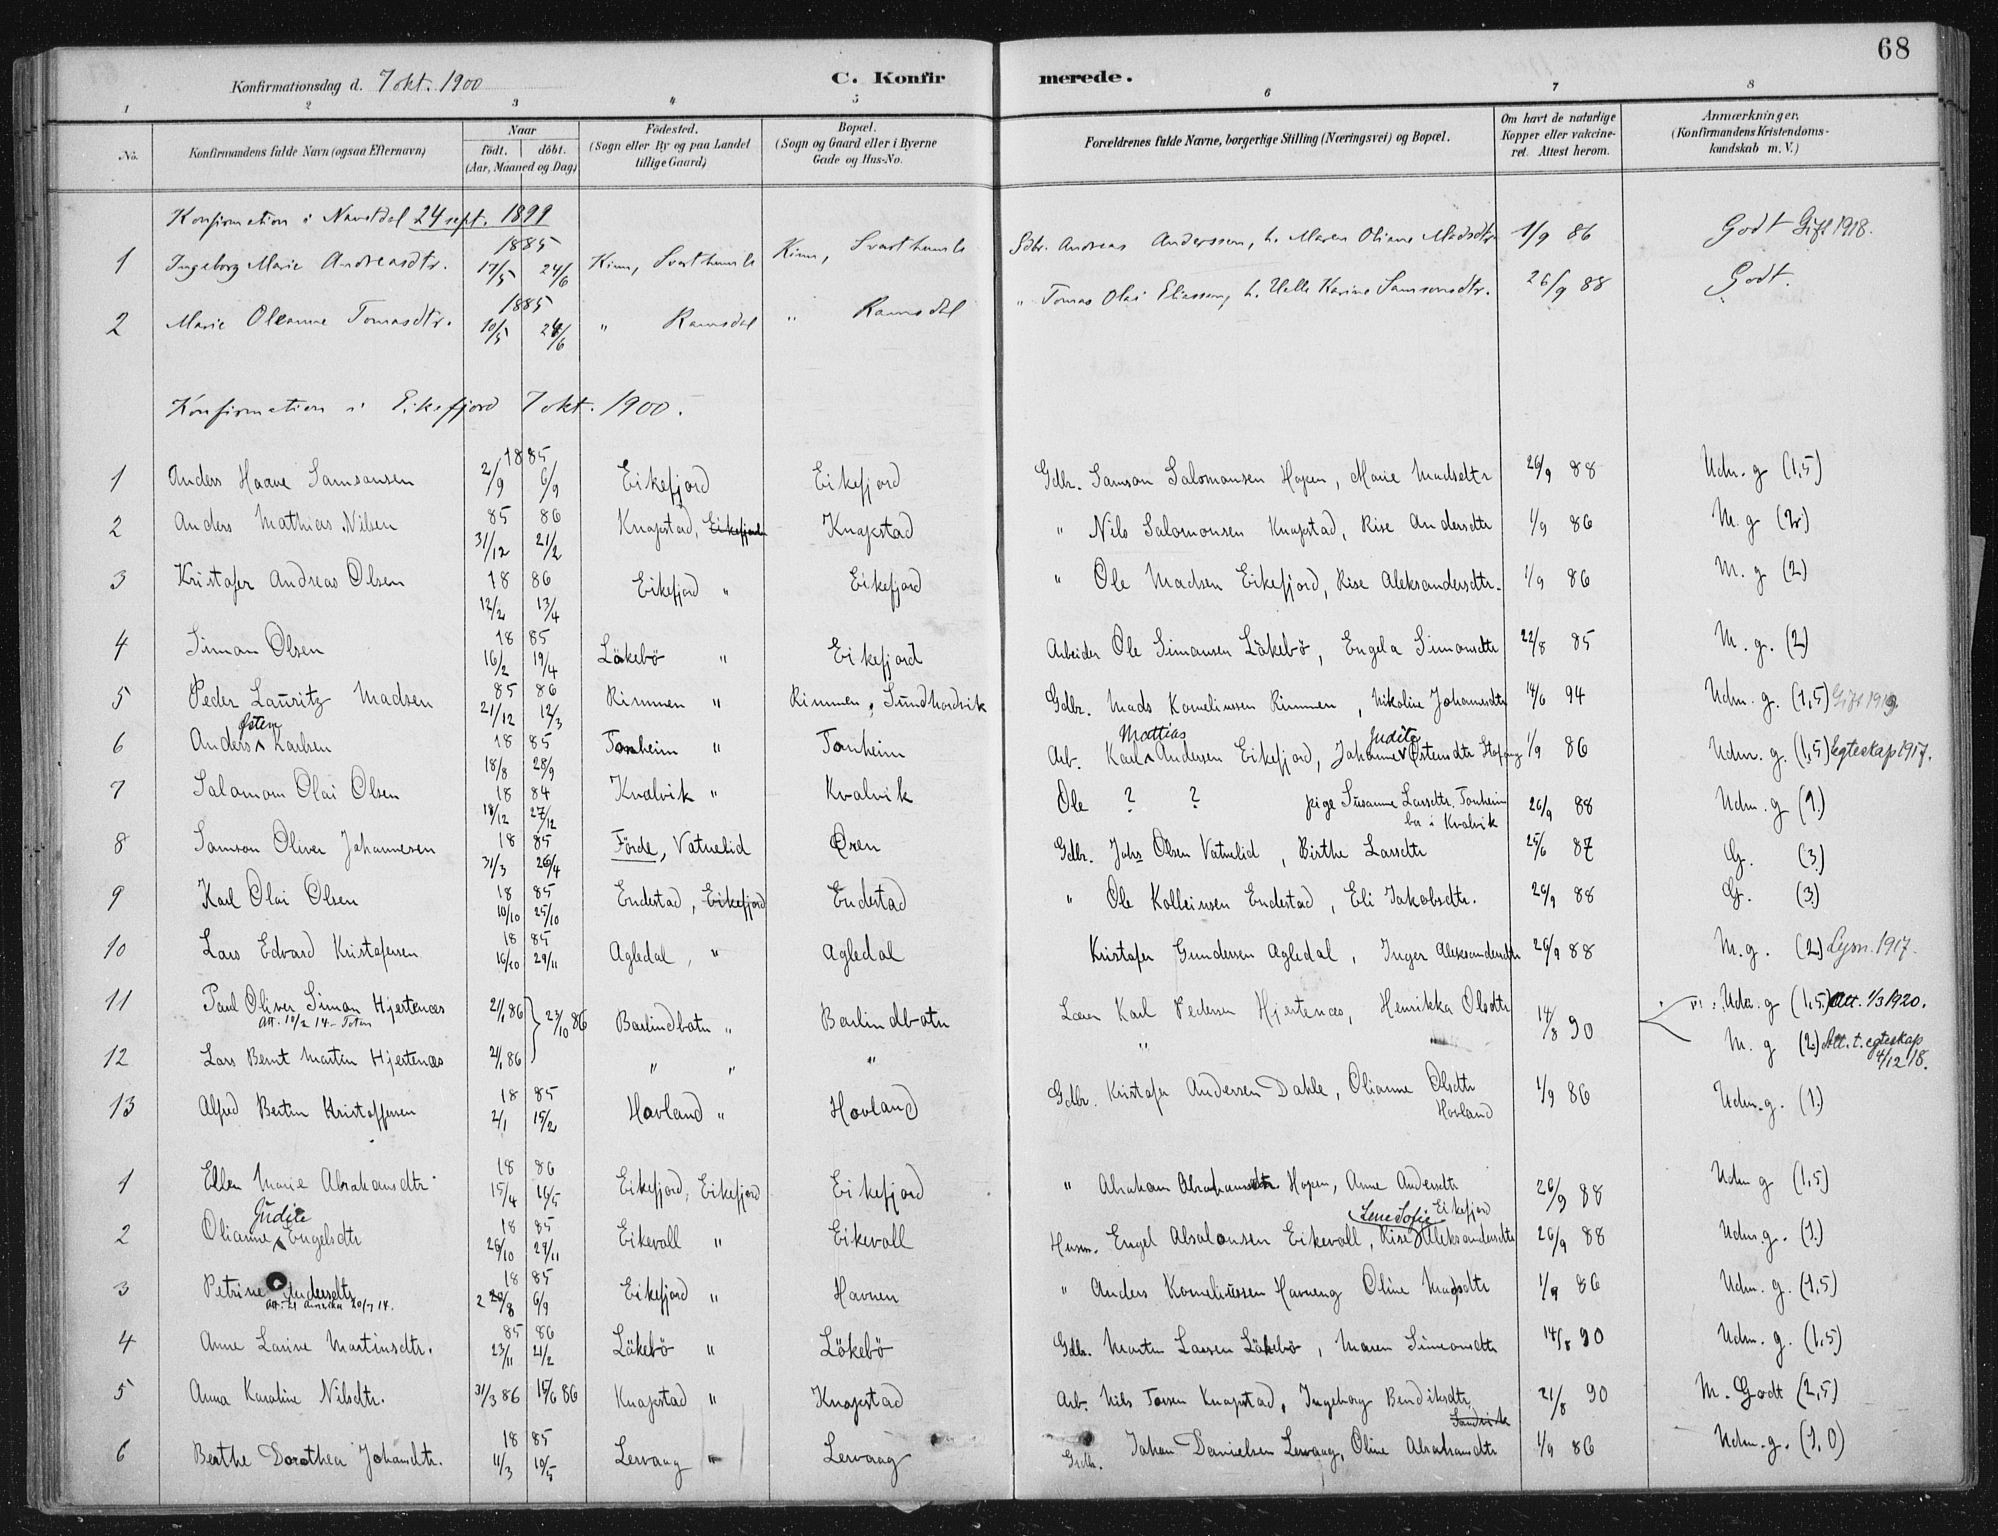 68
Konfirmationsdag d. 7 okt. 1900 C. Konfirmerede.
1 2 3 4 5 6 7 8
No. Konfirmandens fulde Navn (ogsaa Efternavn) Naar født. døbt. (Aar, Maaned og Dag) Födested. (Sogn eller By og paa Landet tillige Gaard) Bopæl. (Sogn og Gaard eller i Byerne Gade og Hus-No.) Forældrenes fulde Navne, borgerlige Stilling (Næringsvei) og Bopæl. Om havt de naturlige Kopper eller vaccineret. Attest herom. Anmærkninger. (Konfirmandens Kristendomskundskab m. V.)
Konfirmation i Navstdal 24 sept. 1899
1 Ingeborg Marie Andreasdtr. 1885 17/5 24/6 Kinn, Svarthumle Kinn, Svarthumle Gdbr. Andreas Anderssen, h. Maren Oliane Madsdtr. 1/9 86 Godt Gift 1918.
2 Marie Oleanne Tomasdtr. 1885 10/5 24/6 " Ramsdal " Ramsdal " Tomas Olai Eliassen, h. Helle Karine Samsonsdtr. 26/9 88 Godt.
Konfirmation i Eikefjord 7 okt. 1900.
1 Anders Haave Samsonsen 1885 2/9 6/9 Eikefjord Eikefjord Gdbr. Samson Salomonsen Hopen, Marie Madsdtr 26/9 88 Udm. g (1,5)
2 Anders Mathias Nilsen 85 86 31/12 21/2 Knapstad, Eikefjord Knapstad " Nils Salomonsen Knapstad, Rise Andersdtr 1/9 86 M. g (2.)
3 Kristofer Andreas Olsen 18 86 12/2 13/4 Eikefjord " Eikefjord " Ole Madsen Eikefjord, Rise Aleksandersdtr. 1/9 86 M. g (2)
4 Simon Olsen 18 85 16/2 19/4 Lökebö " Eikefjord Arbeider Ole Simonsen Lökebö, Engela Simonsdtr 22/8 85 M. g. (2)
5 Peder Lauritz Madsen 85 86 21/12 12/3 Rimmen " Rimmen, Sundhordvik Gdbr. Mads Korneliussen Rimmen, Nikoline Johannesdtr 14/6 94 Udm. g. (1,5) Gift 1919
6 Anders Østen Karlsen 18 85 18/8 28/9 Tonheim " Tonheim Arb. Karl Mattias Andersen Eikefjord, Johanne Judite Østensdtr 1/9 86 Udm. g. (1,5) Egteskap 1917.
7 Salamon Olai Olsen 18 84 18/12 27/12 Kvalvik " Kvalvik Ole ? ? pige Susanne Larsdtr. Tonheim bor i Kvalvik 26/9 88 Udm. g (1.)
8 Samson Oliver Johannesen 18 85 31/3 26/4 Förde, Vatnelid Øren Gdbr. Johs Olsen Vatnelid, Birthe Larsdtr 25/6 87 G. (3.)
9 Karl Olai Olsen 18 85 10/10 25/10 Endestad, Eikefjord Endestad " Ole Kolbeinsen Endestad, Eli Jakobsdtr. 26/9 88 G. (3.)
10 Lars Edvard Kristofersen 18 85 16/10 29/11 Agledal, " Agledal Kristofer Gundersen Agledal, Inger Aleksandersdtr 26/9 88 M. g. (2) Lysn. 1917.
11 Paul Oliver Simon Hjertenæs 2/1 86 23/10 86 Barlindbotn " Barlindbotn Lærer Karl Pedersen Hjertenæs, Henrikka Olsdtr 14/8 90 Udm. g (1,5) Att. 1/3 1920.
Att. 10/2 14 - Toten
12 Lars Bernt Martin Hjertenæs 2/1 86 " " " " M. g (2.) Att. t. egteskap 4/12 18.
13 Alfred Bertin Kristoffersen 18 85 2/1 15/2 Hovland " Hovland Gdbr. Kristofer Andersen Dahle, Olianne Olsdtr Hovland 1/9 86 Udm. g. (1.)
1 Ellen Marie Abrahamsdtr. 18 86 15/4 16/5 Eikefjord, Eikefjord Eikefjord " Abraham Abrahamsen Hopen, Anne Andersdtr Eikefjord 26/9 88 Udm g (1,5)
2 Olianne Judite Engelsdtr 18 85 26/10 29/11 Eikevoll " Eikevoll Husm. Engel Absalonsen Eikevoll, Rise Lene Sofie Aleksandersdtr 26/9 88 Udm. g. (1.)
3 Petrine Andersdtr 18 85 20/8 6/9 Eikefjord " Havnen " Anders Korneliussen Havneng Oline Madsdtr 1/9 86 Udm. g. (1,5)
Att. til Amerika 20/7 14.
4 Anne Larine Martinsdtr. 85 86 23/11 21/2 Lökebö " Lökebö Gdbr. Martin Larsen Lökebö, Maren Simonsdtr 14/8 90 Udm. g. (1,5)
5 Anna Karoline Nilsdtr. 31/3 86 15/6 86 Knapstad " Knapstad Arb. Nils Torsen Knapstad, Ingeborg Bendiksdtr Sandvik 21/8 90 M. Godt (2,5)
6 Berthe Dorothea Johansdtr. 18 85 11/3 10/5 Lervaag " Lervaag Gdbr. Johan Danielsen Lervaag, Oline Abrahamsdtr 1/9 86 Udm. g. (1,0)